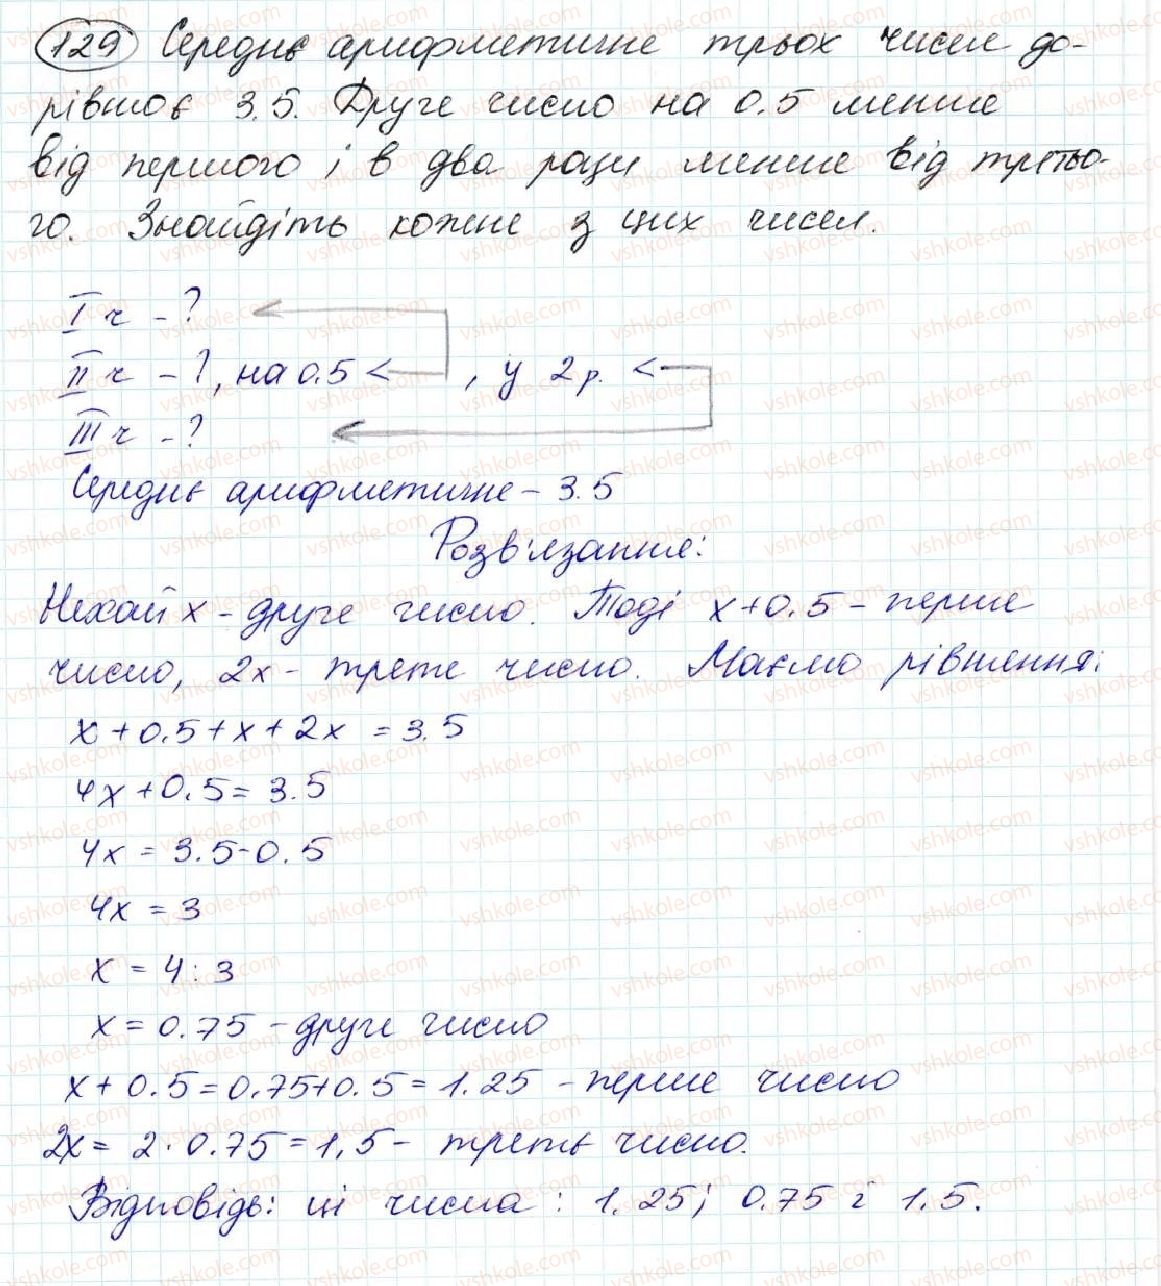 129 Середнє арифметичне трьох чисел до-
рівнює 3.5. Друге число на 0.5 менше
від першого і в два рази менше від третьо-
го. Знайдіть кожне з цих чисел.
I ч - ?
II ч - ?, на 0.5 < , у 2 р. <
III ч - ?
Середнє арифметичне - 3.5
Розв'язання:
Нехай x - друге число. Тоді x + 0.5 - перше
число, 2x - третє число. Маємо рівняння:
x + 0.5 + x + 2x = 3.5
4x + 0.5 = 3.5
4x = 3.5 - 0.5
4x = 3
x = 4 : 3
x = 0.75 - друге число
x + 0.5 = 0.75 + 0.5 = 1.25 - перше число
2x = 2 · 0.75 = 1,5 - третє число.
Відповідь: ці числа : 1.25; 0.75 і 1.5.